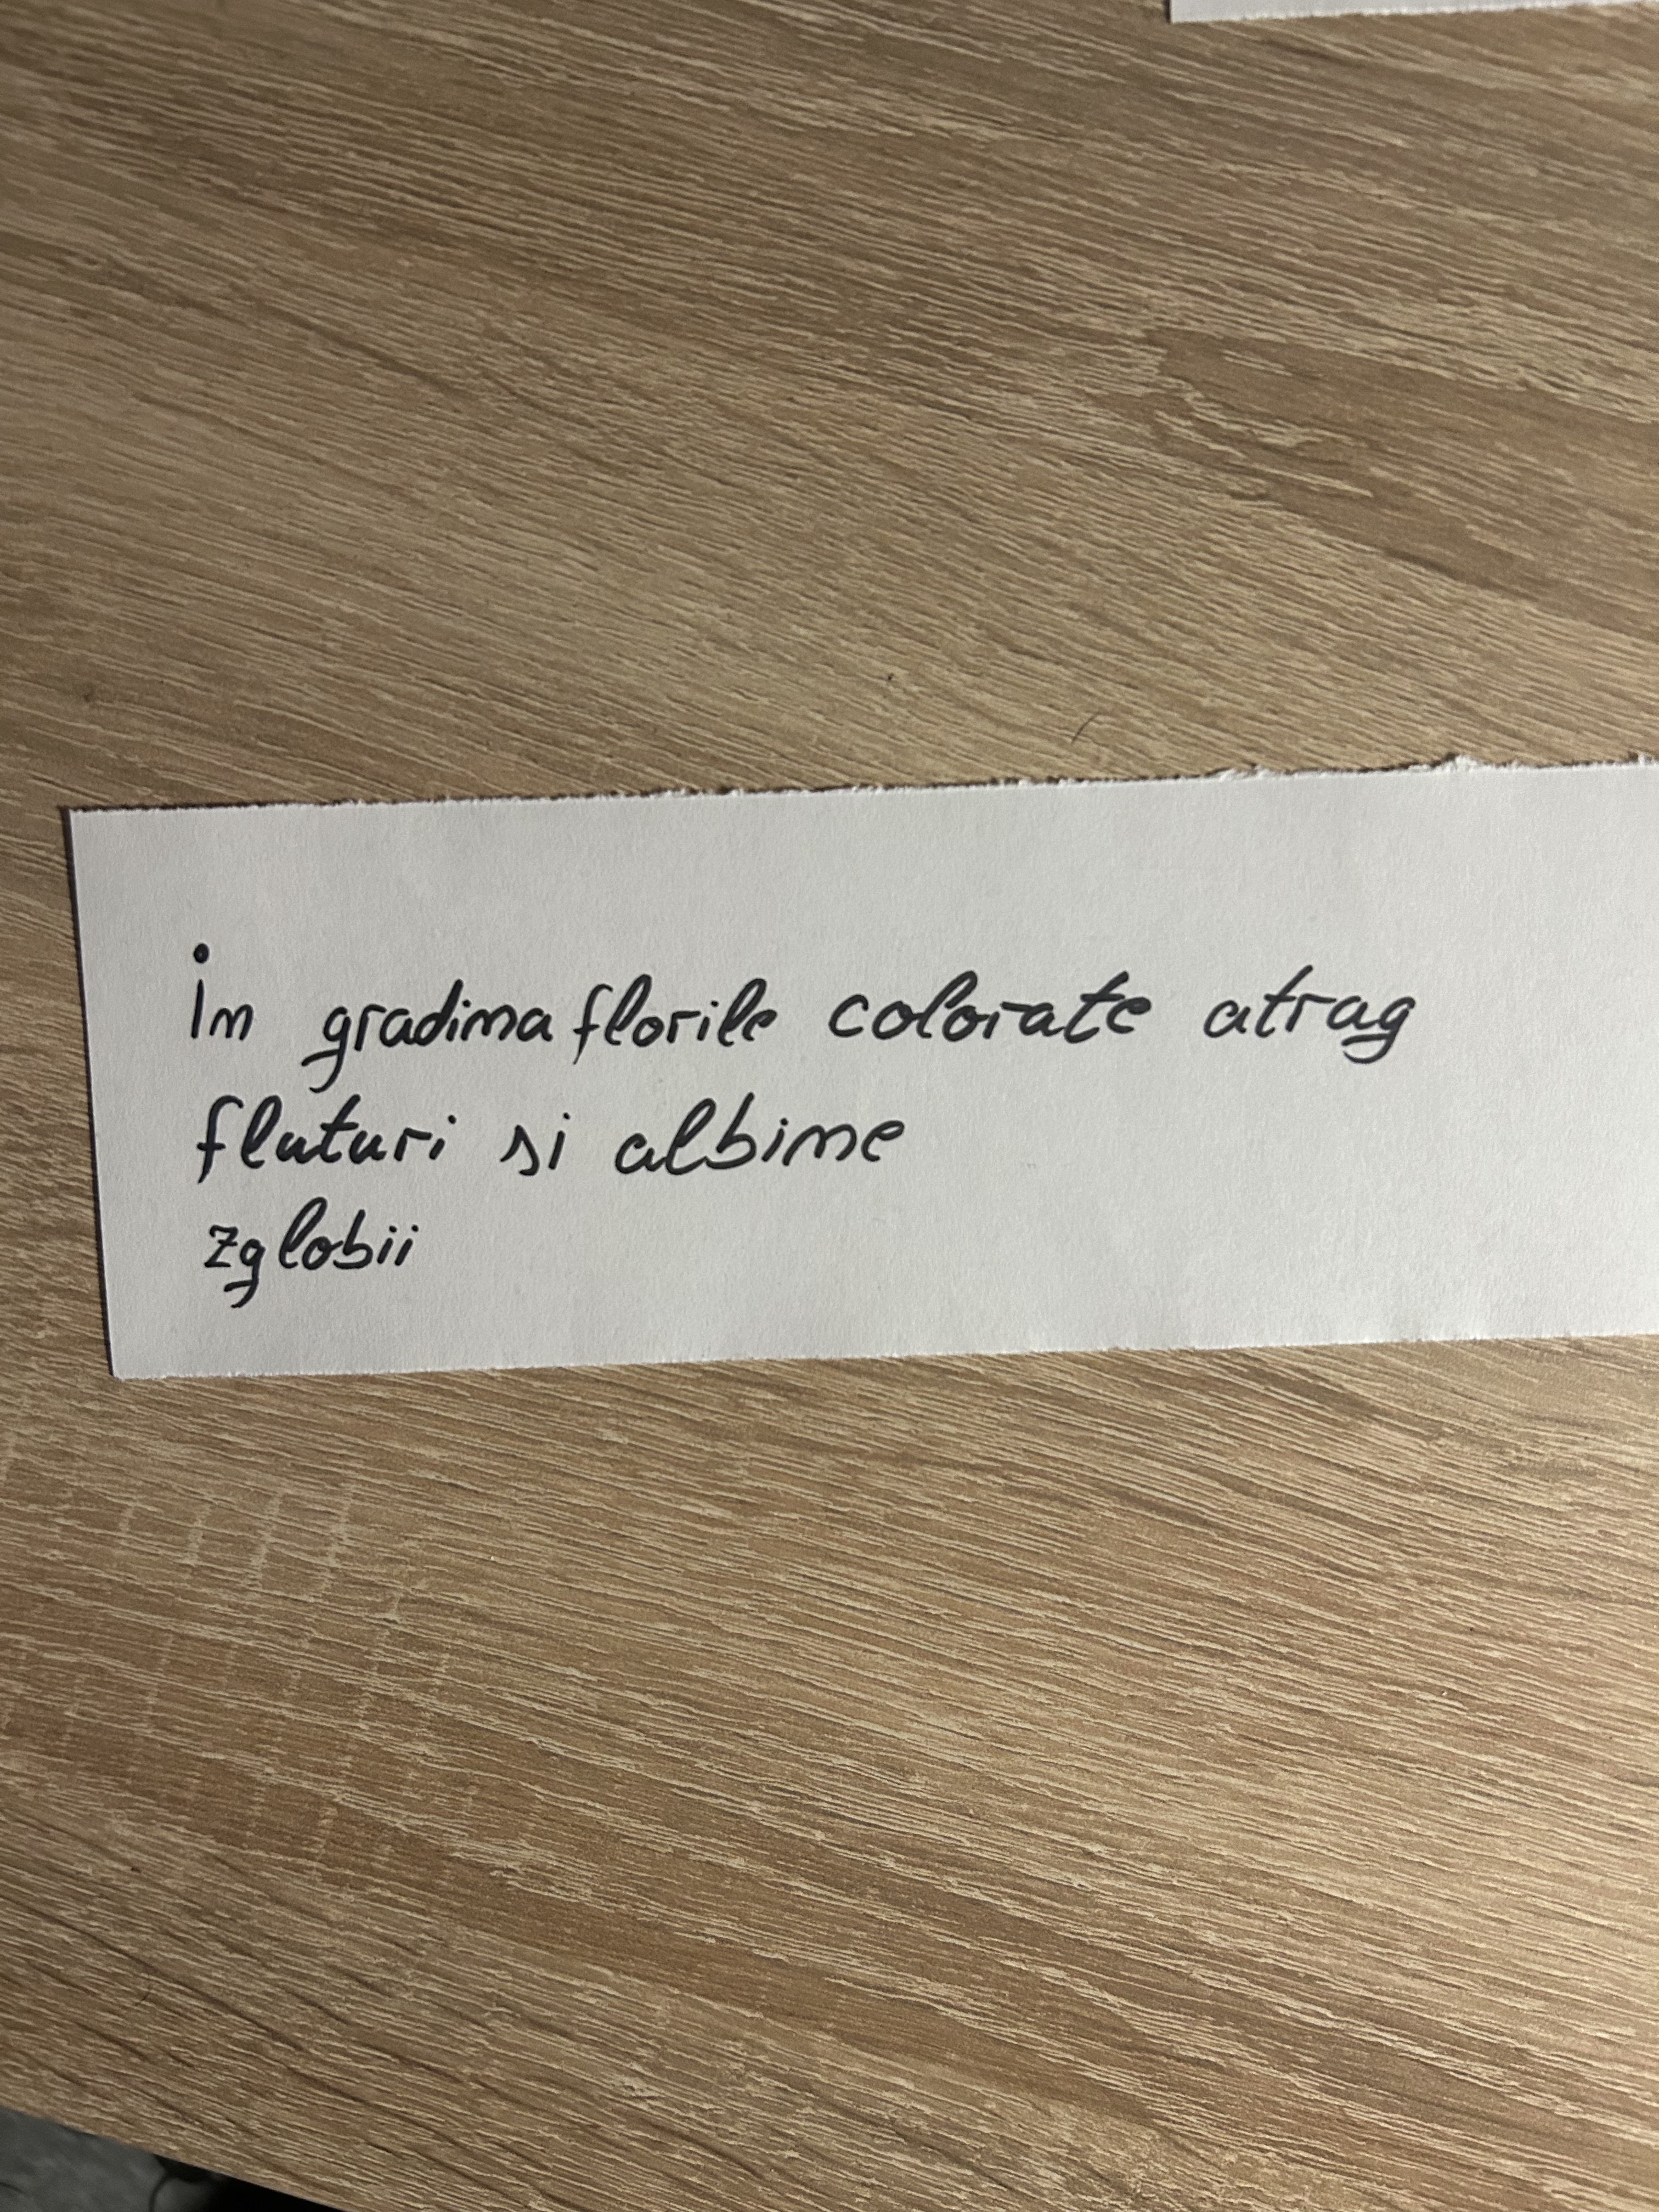 In gradina florile colorate atrag
fluturi si albine
zglobii